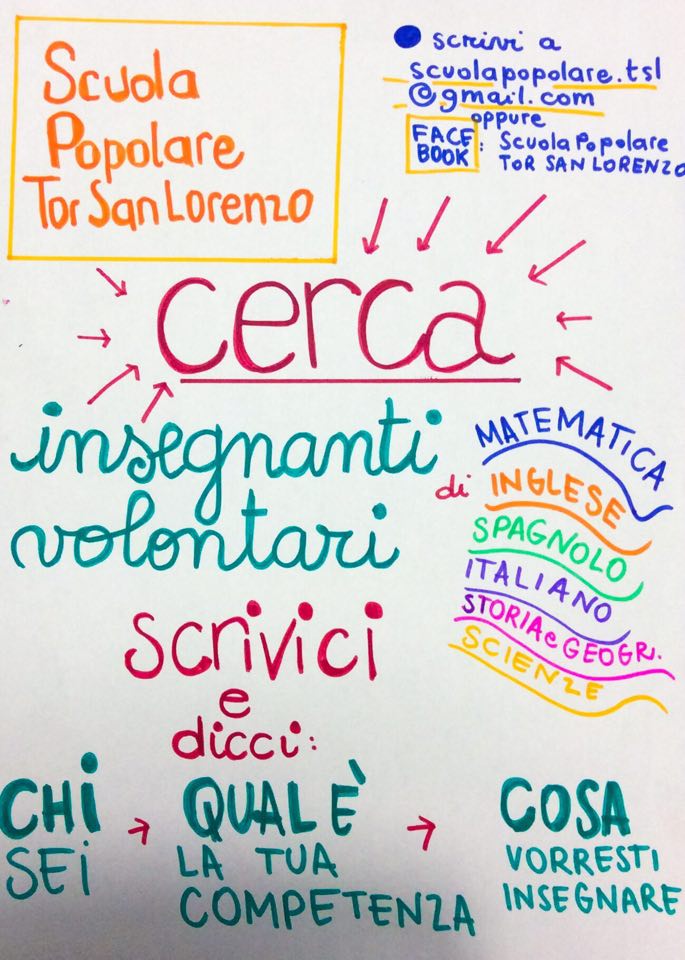 Scuola
Popolare
Tor San Lorenzo
scrivi a
scuolapopolare.tsl
@gmail.com
oppure
FACE
BOOK : Scuola Popolare
TOR SAN LORENZO
cerca
insegnanti
volontari
di
MATEMATICA
INGLESE
SPAGNOLO
ITALIANO
STORIA e GEOGR.
SCIENZE
scrivici
e
dicci:
CHI
SEI
QUAL È
LA TUA
COMPETENZA
COSA
VORRESTI
INSEGNARE